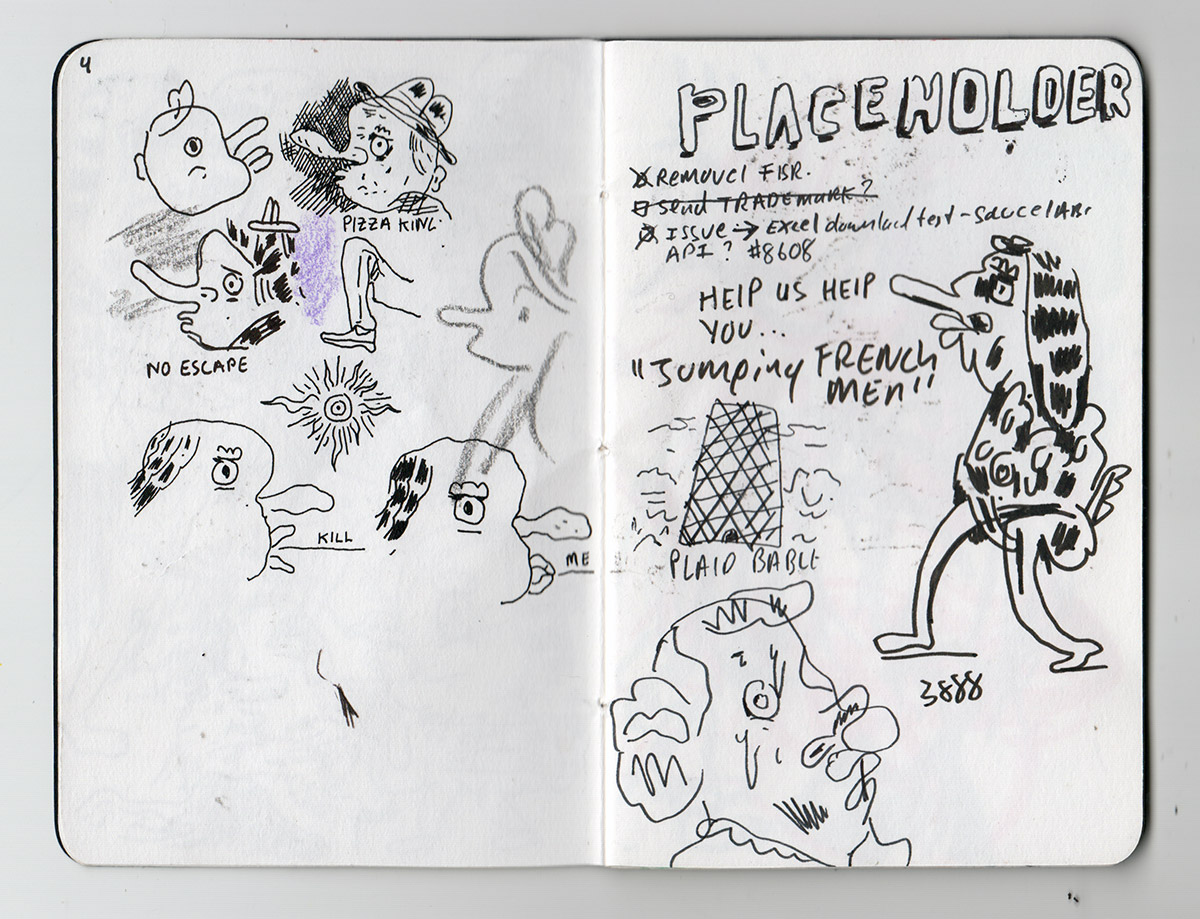 4
PIZZA KING
NO ESCAPE
KILL
ME
PLACEHOLDER
REMOVEL FISR.
Send TRADEMARK?
ISSUE → Excel download test - sauceLABS
API? #8608
HELP US HELP
YOU...
"Jumping FRENCH
MEN"
PLAID BABLE
3888